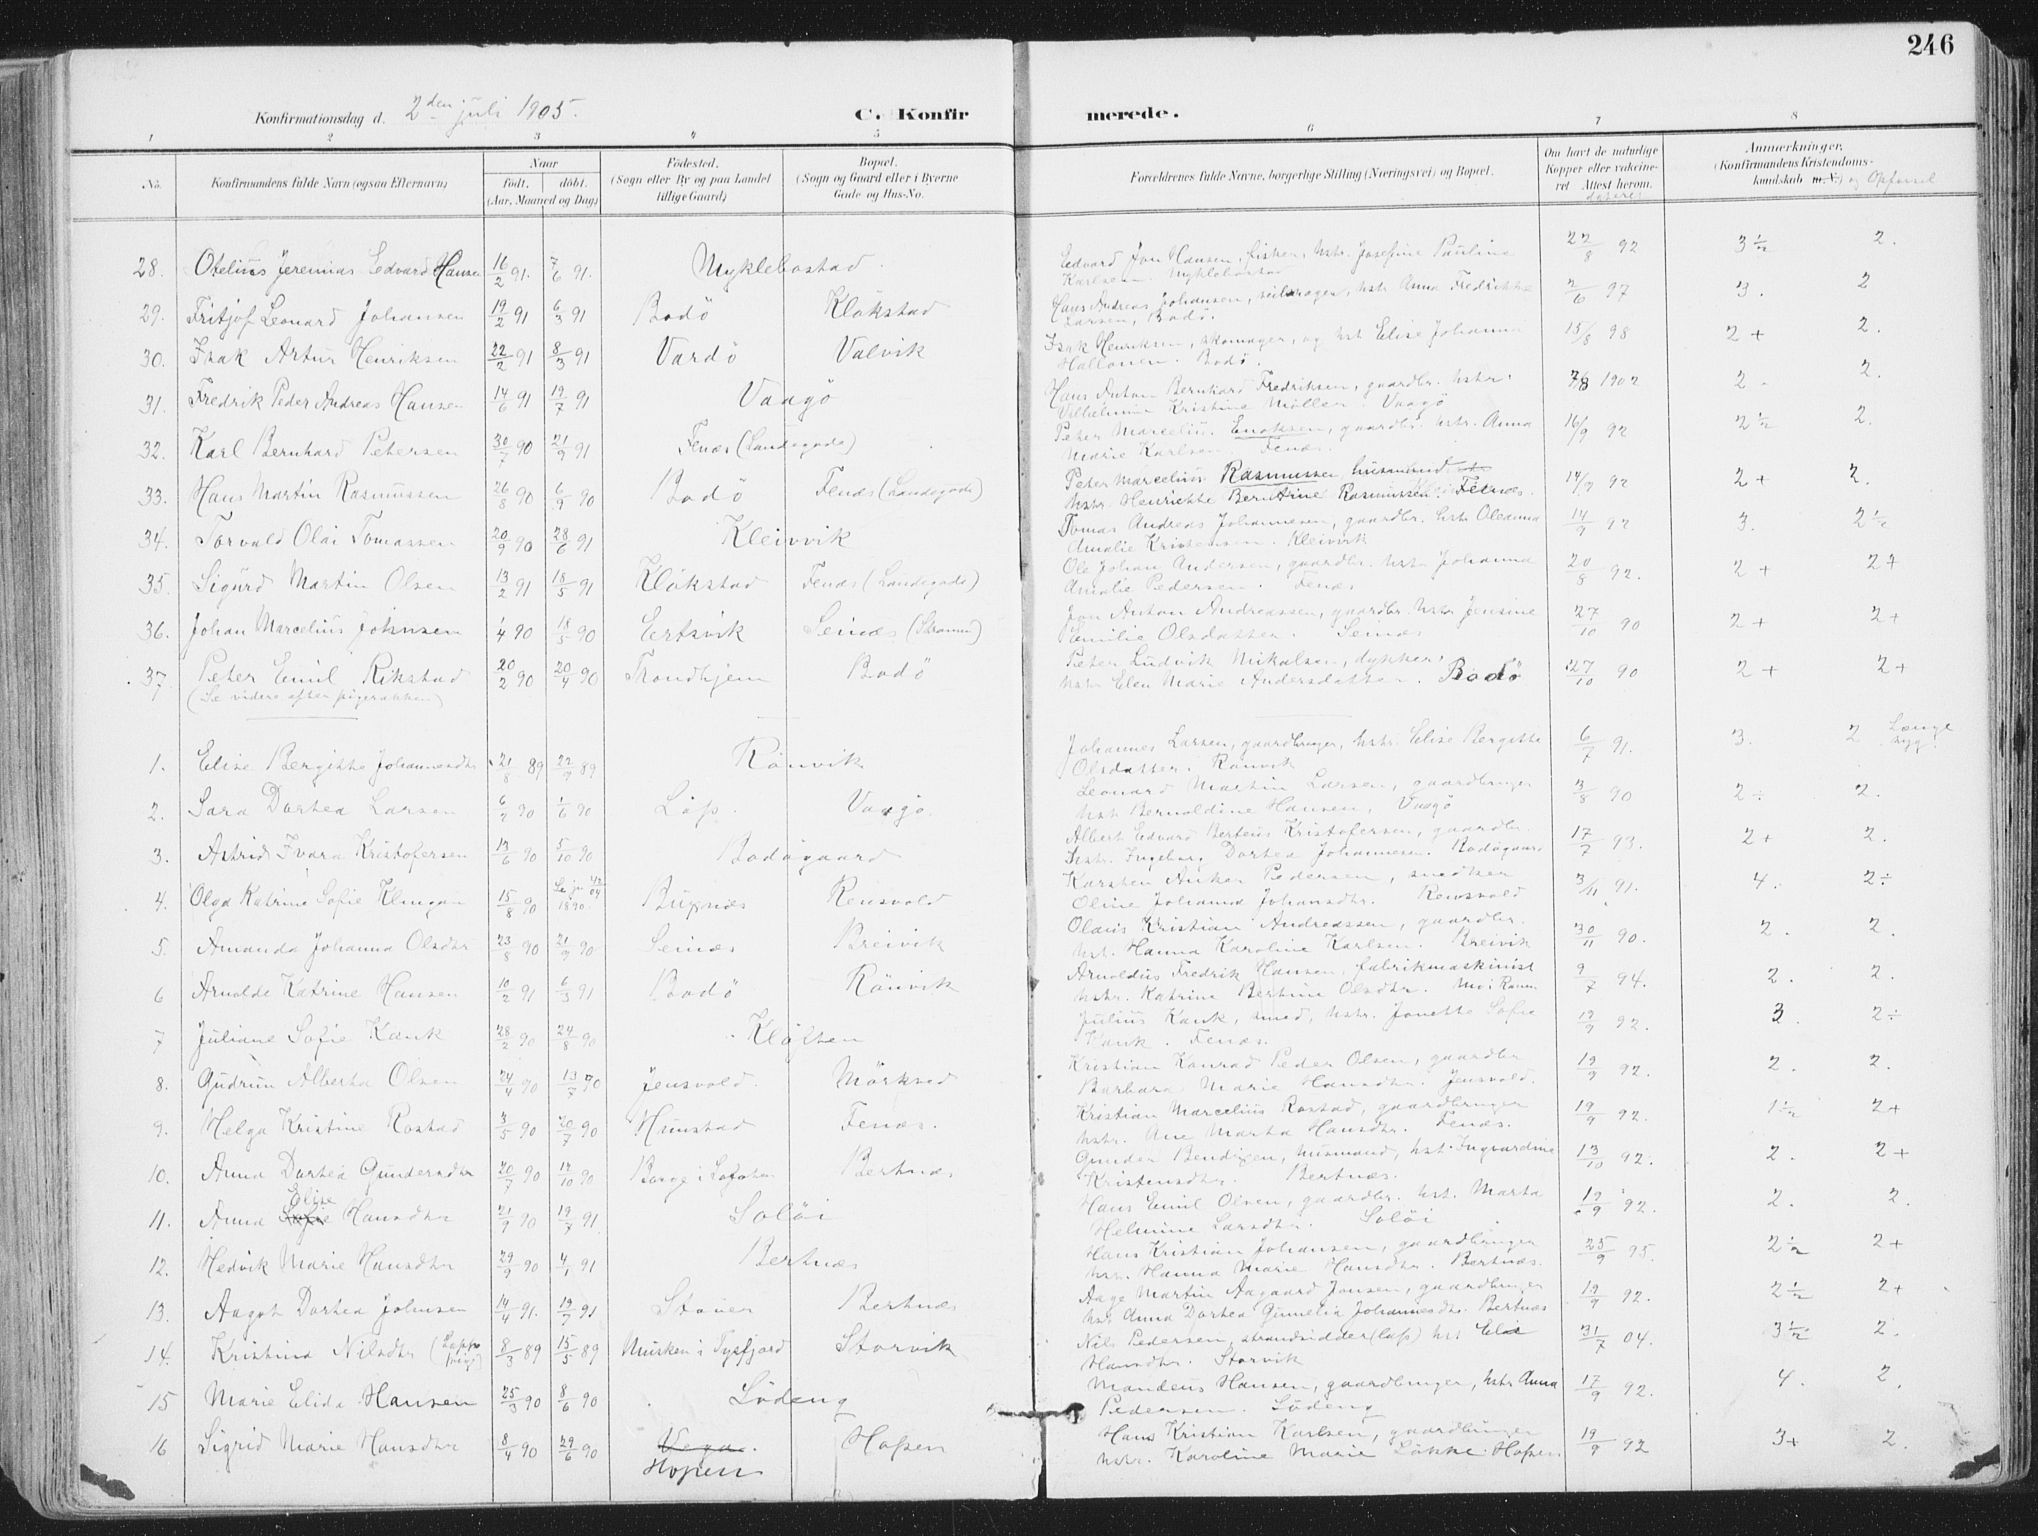 246
Konfirmationsdag d. 2den juli 1905.
C. Konfirmerede.
1 2 3 4 5 6 7 8
No. Konfirmandens fulde Navn (ogsaa Efternavn) Naar født. døbt. (Aar, Maaned og Dag) Fødested. (Sogn eller By og paa Landet tillige Gaard) Bopæl. (Sogn og Gaard eller i Byerne Gade og Hus-No. Forældrenes fulde Navne, borgerlige Stilling (Næringsvei) og Bopæl. Om havt de naturlige Kopper eller vakcineret. Attest herom. dateret Anmærkninger. (Konfirmandens Kristendomskundskab m. V.) og Opførsel
28. Otelius Jeremias Edvard Hansen 16/2 91. 7/6 91. Myklebostad. Edvard Jon Hansen, fisker, hstr. Josefine Pauline Karlsen. Myklebostad 22/8 92 3½ 2.
29. Fritjof Leonard Johansen 19/2 91 6/3 91 Bodö Klökstad Hans Andreas Johansen, seilmager, hstr. Anna Fredrikke Larsen, Bodö. 2/6 97 3. 2
30. Isak Artur Henriksen 22/2 91 8/3 91 Vardö Valvik Isak Henriksen, skomager, og hst Elise Johanna Hallonen. Bodö. 15/8 98 2+ 2.
31. Fredrik Peder Andreas Hansen 14/6 91 19/7 91 Vaagö Hans Anton Bernhard Fredriksen, gaardbr. hstr. Vilhelmina Kristina Möller. Vaagö 7/8 1902 2. 2.
32. Karl Bernhard Petersen 30/7 90 21/9 91 Fenæs (Landegode) Peter Marcelius Enoksen, gaardbr. hstr. Anna Marie Karlsen. Fenæs. 16/9 92 2½ 2.
33. Hans Martin Rasmussen 26/8 90 6/9 90 Bodö Fenæs (Landegode) Peter Marcelius Rasmussen, husmand hstr. Henrikke Berntine Rasmussen. Fenæs. 14/9 92 2+ 2.
34. Torvald Olai Tomassen 20/9 90 28/6 91 Kleivvik Tomas Andreas Johannesen, gaardbr. hstr. Oleanna Amalie Kristensen. Kleivvik 14/9 92 3. 2½
35. Sigurd Martin Olsen 13/2 91 18/5 91 Klökstad Fenæs (Landegode) Ole Johan Andersen, gaardbr. hstr Johanna Amalie Pedersen. Fenæs 20/8 92. 2+ 2+
36. Johan Marcelius Johnsen 1/4 90 18/5 90 Ertsvik Seinæs Jon Anton Andreassen, gaardbr. hstr. Jensine Emilie Olsdatter. Seinæs 27/10 90 2+ 2+
37 Peter Emil Rikstad 20/2 90 20/4 90 Trondhjem Bodö Peter Ludvik Mikalsen, dykker, hstr Elen Marie Andersdatter. Bodö 27/10 90 2+ 2+
(Se videre efter pigerækken)
1. Elise Bergitte Johannesdtr 21/8 89 22/9 89 Rönvik Johannes Larsen, gaardbruger, hstr. Elise Bergitte Olsdatter. Rönvik 6/7 91. 3. 2 Længe syg.
2. Sara Dortea Larsen 6/2 90 1/6 90 Löp. Vaagö. Leonard Martin Larsen, gaardbruger hstr Bernoldine Hansen, Vaagö 3/8 90 2÷ 2.
3. Astrid Ivara Kristofersen 13/6 90 5/10 90 Bodögaard Albert Edvard Berteus Kristofersen, gaardbr. hstr. Ingeborg Dortea Johannesen. Bodögaard 17/7 93. 2+ 2.
4. Olga Katrine Sofie Klingan 15/8 90 1890. Buxnæs Rensvold Karsten Anker Pedersen, snedker Oline Johanna Johansdtr. Rensvold 3/11 91. 4. 2÷
5. Amanda Johanna Olsdtr 23/8 90 21/9 90 Seinæs Breivik Olaus Kristian Andreassen, gaardbr. hst. Hanna Karoline Karlsen. Breivik 30/11 90. 2. 2.
6 Arnolde Katrine Hansen 10/2 91 6/3 91 Bodö Rönvik Arnoldus Fredrik Hansen, fabrikmaskinist hstr. Katrine Bertine Olsdtr. 9/7 94. 2. 2.
7 Juliane Sofie Kank 28/2 90 24/8 90 Klöften Julius Kank, smed, hstr. Jonette Sofie Kank. Fenæs. 19/9 92. 3. 2÷
8. Gudrun Alberta Olsen 24/4 90 13/7 90 Jensvold. Mörkved Kristian Konrad Peder Olsen, gaardbr Barbara Marie Hansdtr. Jensvold. 19/9 92. 2. 2.
9. Helga Kristine Rostad 3/5 90 20/7 90 Hunstad Fenæs. Kristian Marcelius Rostad, gaardbruger hstr. Ane Marta Hansdtr. Fenæs. 19/9 92. 1½ 2+
10. Anna Dortea Gundersdtr 20/7 90 12/10 90 Borge i Lofoten Bertnæs Gunder Bendigen, husmand, hst. Ingvardine Kristensdtr. Bertnæs. 13/10 92. 2. 2+
11. Anna Sofie Elise Hansdtr 21/9 90 19/7 91 Solöi Hans Emil Olsen, gaardbr. hst. Marta Helmine Larsdtr. Solöi 19/9 92. 2. 2.
12. Hedvik Marie Hansdtr 29/9 90 4/1 91 Bertnæs Hans Kristian Johansen, gaardbruger hst. Hanna Marie Hansdtr. Bertnæs. 25/9 95. 2½ 2+
13. Aagot Dortea Johnsen 14/4 91. 19/7 91 Støver Bertnæs Aage Martin Aagaard Jonsen, gaardbruger hst Anna Dortea Gunelia Johannesdtr. Bertnæs 19/9 92. 2½ 2+
14. Kristina Nilsdtr (Lappepige) 8/3 89 15/5 89 Musken i Tysfjord Storvik Nils Pedersen, strandsidder (lap) hst Elie Hansdtr. Storvik 31/7 04. 3½ 2.
15 Marie Elida Hansen 25/3 90 8/6 90 Lödeng Mandeus Hansen, gaardbruger, hstr Anna Pedersen. Lödeng 17/9 92. 4. 2.
16 Sigrid Marie Hansdtr 8/4 90 29/6 90 Vega. Hopen Hopen Hans Kristian Karlsen, gaardbruger hstr. Karoline Marie Lökke. Hopen 19/9 92 3+ 2.